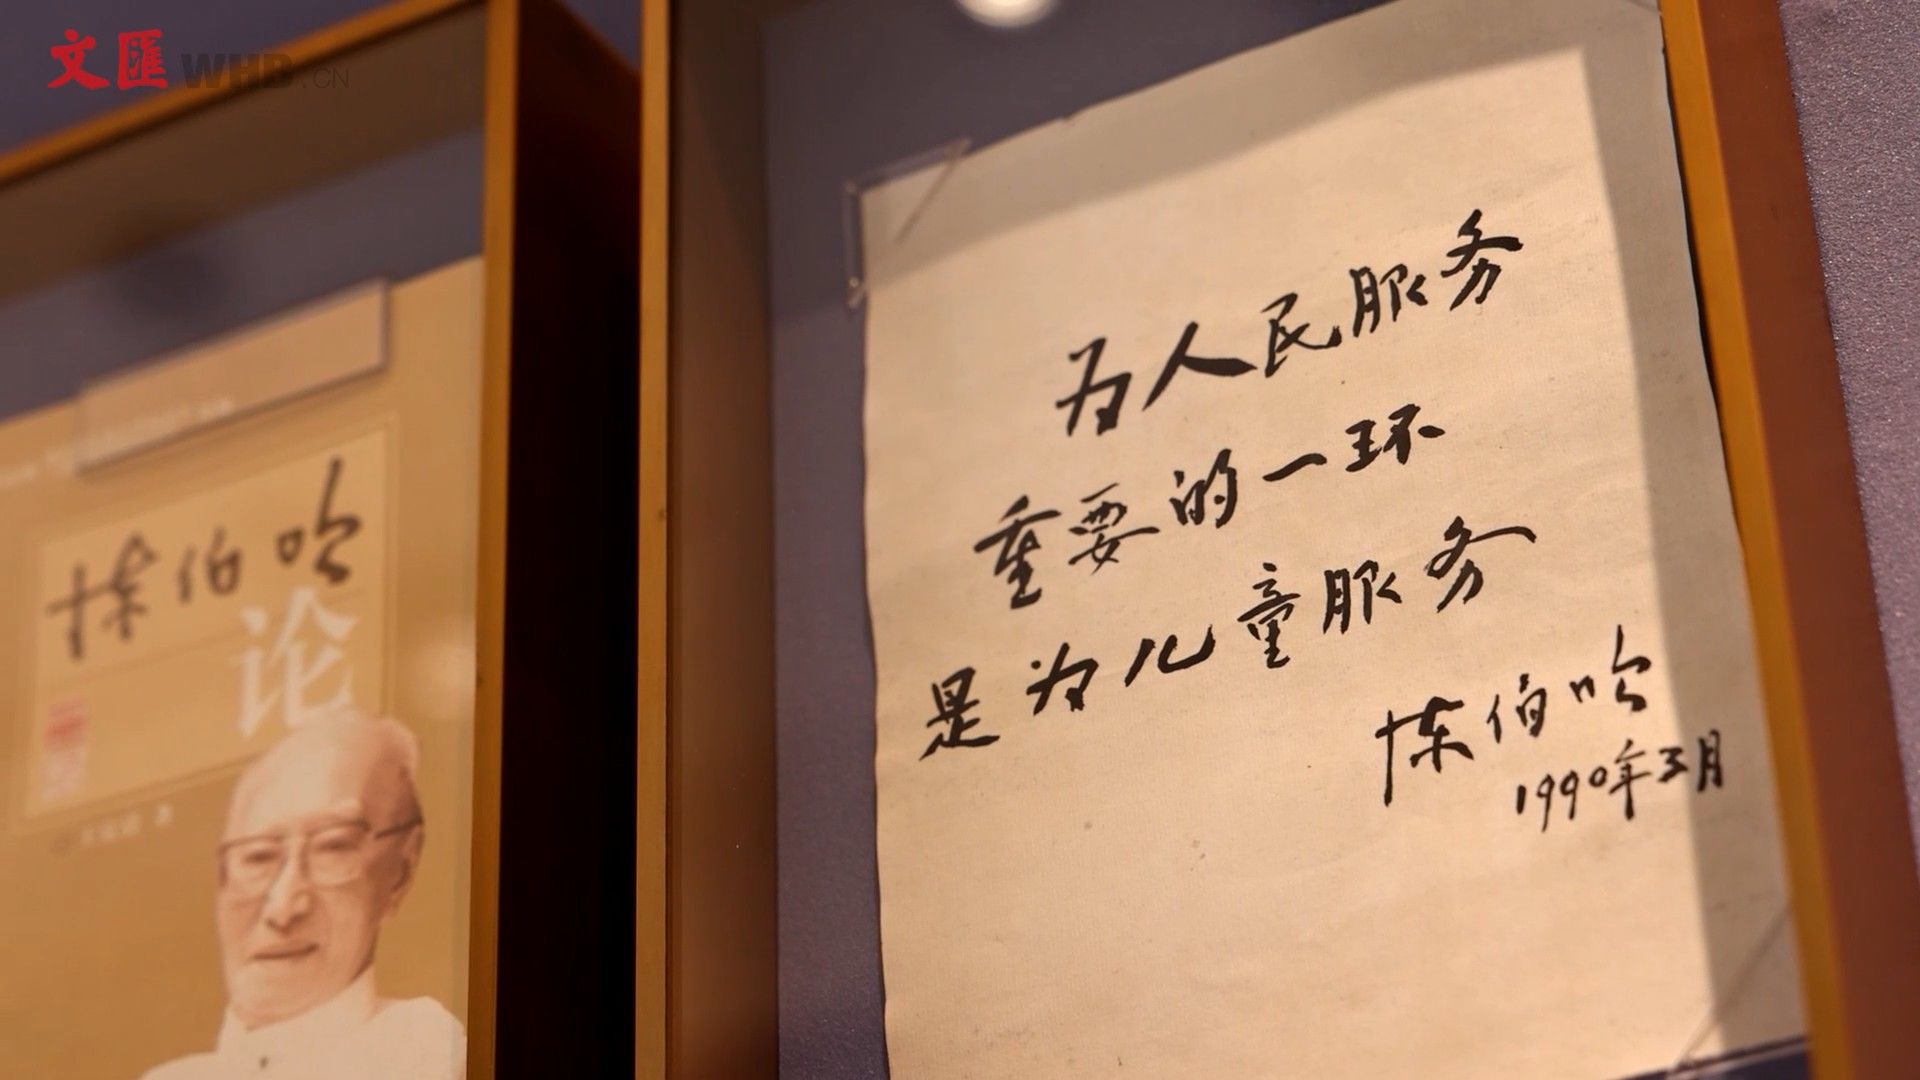 文匯 WHB.CN
陈伯吹
论
著
为人民服务
重要的一环
是为儿童服务
陈伯吹
1990年三月